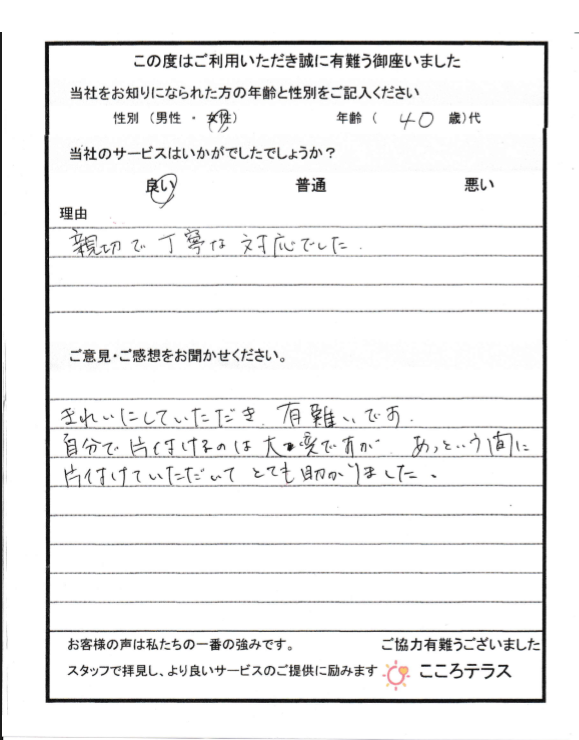 この度はご利用いただき誠に有難う御座いました
当社をお知りになられた方の年齢と性別をご記入ください
性別（男性 ・ 女性） 年齢（ 40 歳）代
当社のサービスはいかがでしたでしょうか？
良い 普通 悪い
理由
親切で丁寧な対応でした.
ご意見・ご感想をお聞かせください。
きれいにしていただき、有難いです.
自分で片付けるのは大変ですが あっという間に
片付けていただいて とても助かりました。
お客様の声は私たちの一番の強みです。 ご協力有難うございました
スタッフで拝見し、より良いサービスのご提供に励みます こころテラス